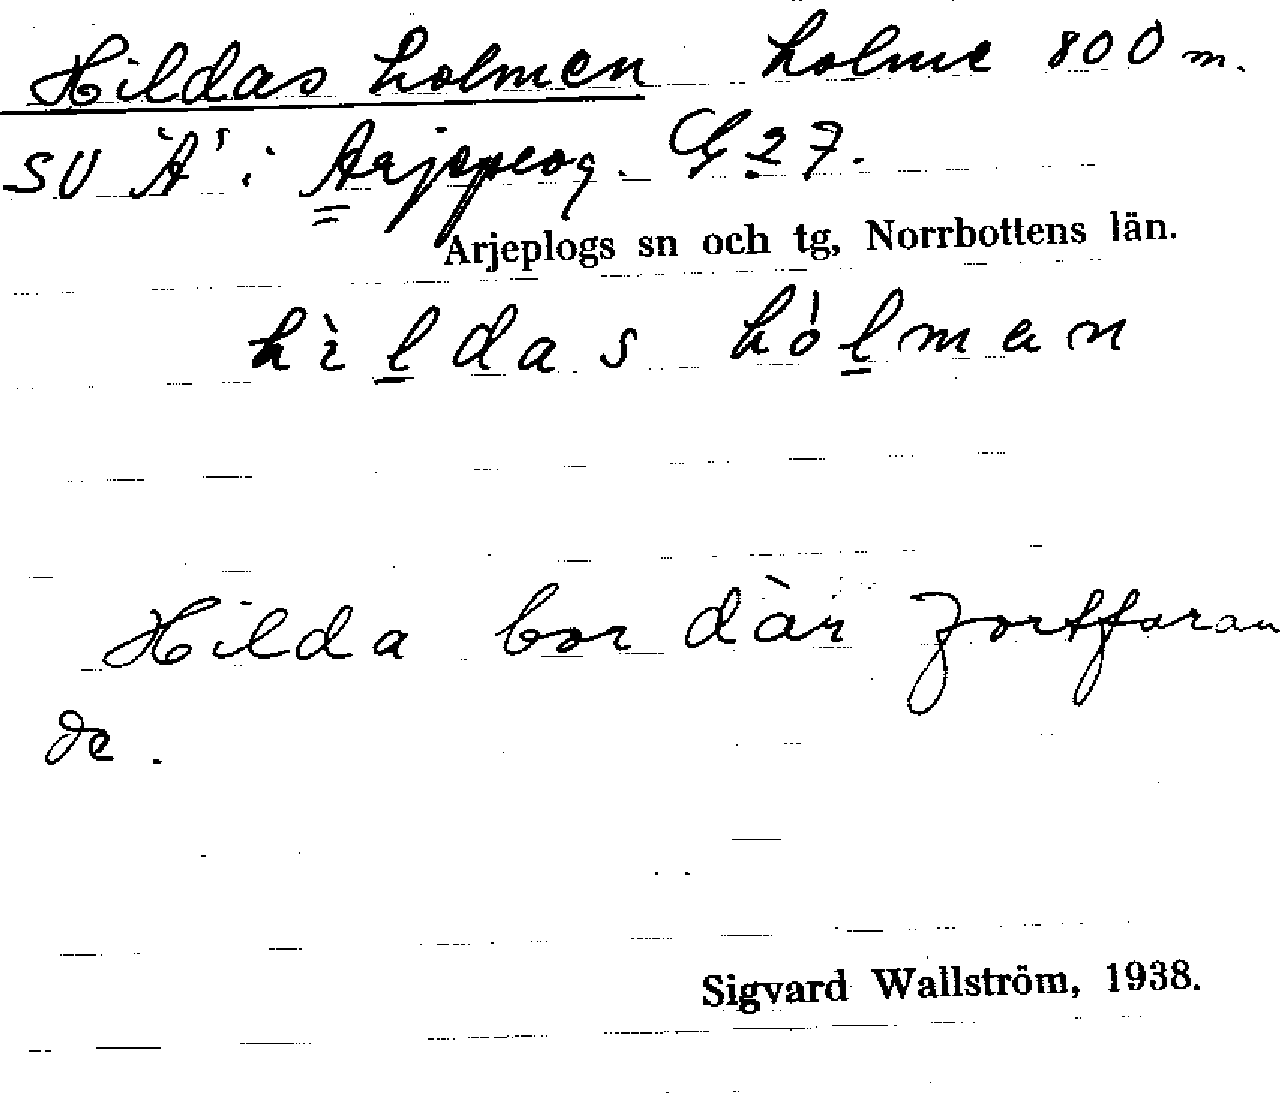 Hildas holmen holme 800 m.
SV "A" i Arjeplog. G 27.
Arjeplogs sn och tg, Norrbottens län.
hìldas hólman
Hilda bor där fortfaran
de.
Sigvard Wallström, 1938.